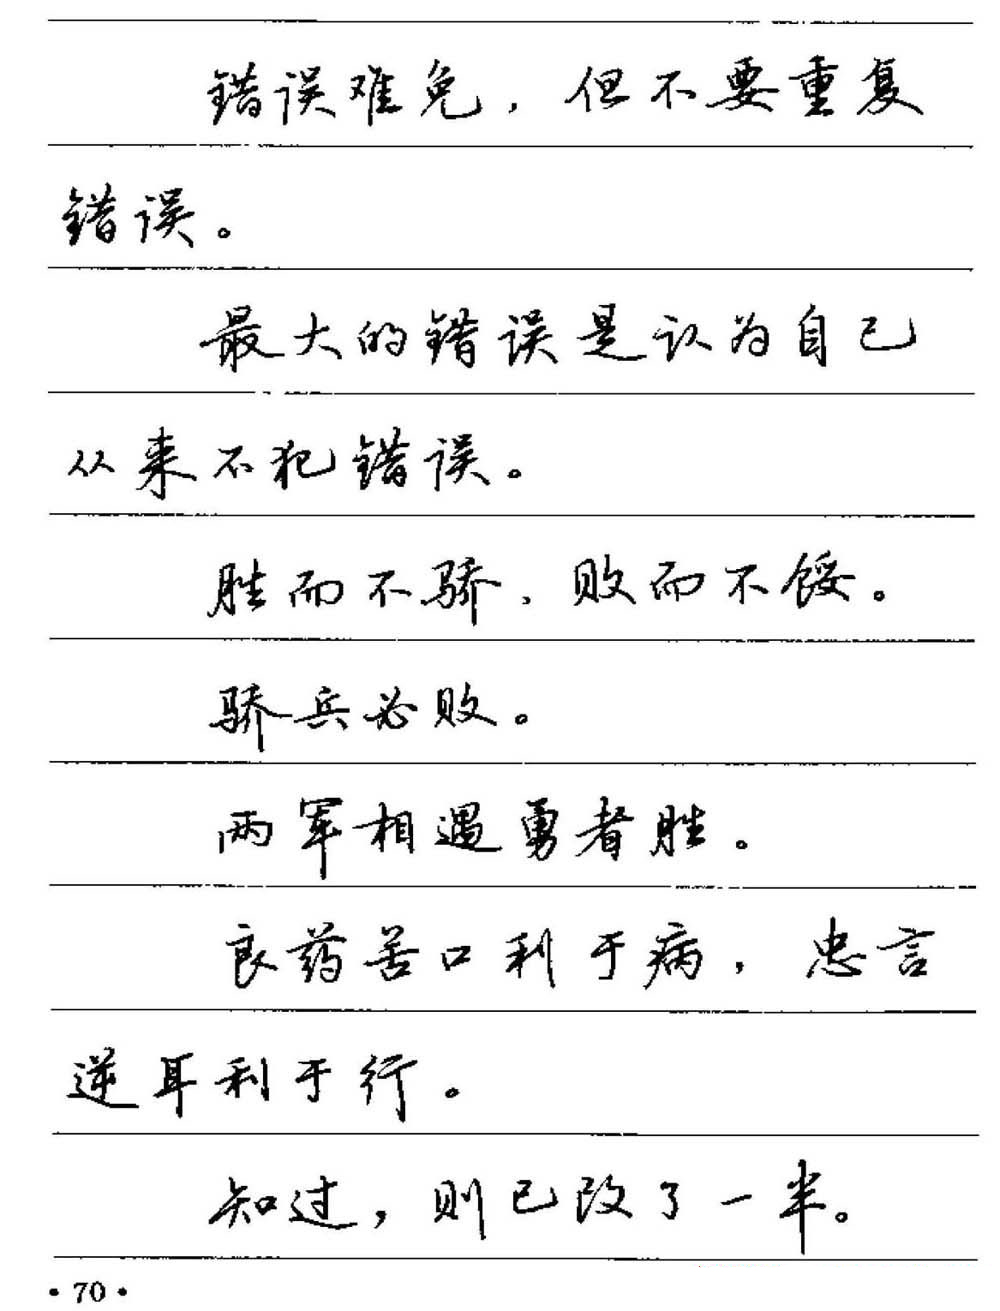 错误难免，但不要重复
错误。
最大的错误是认为自己
从来不犯错误。
胜而不骄，败而不馁。
骄兵必败。
两军相遇勇者胜。
良药苦口利于病，忠言
逆耳利于行。
知过，则已改了一半。
·70·